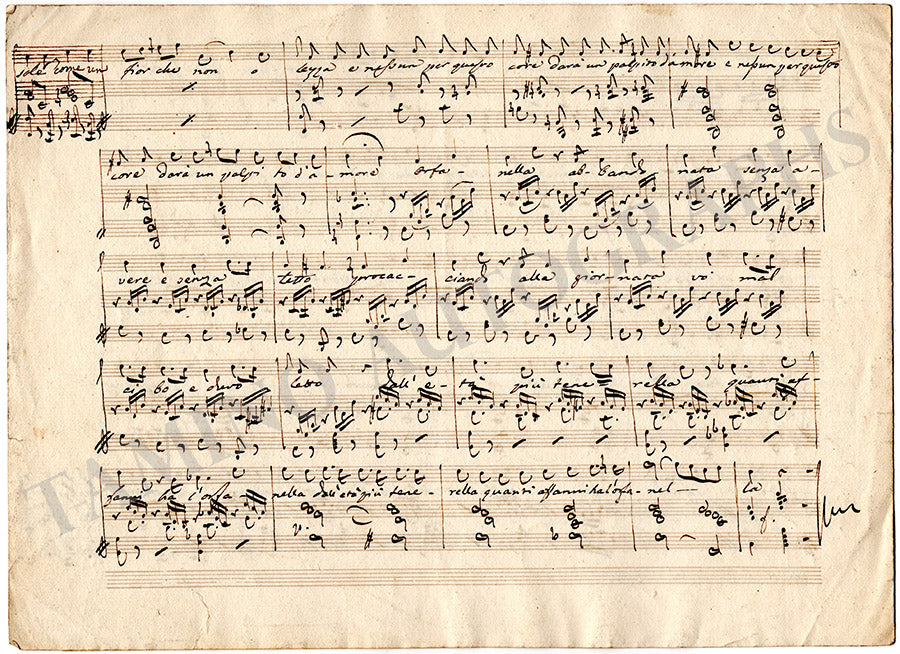 sole come un fior che non o- lezza e nessun per questo core darà un palpito d'amore e nessun per questo
core darà un palpi- to d'a- more orfa- nella ab- band nata senza a-
vere e senza tetto procac- ciand alla gior- nata vo mal
cibo e duro letto dall'e- tà più tene- rella quanti af-
fanni ha l'orfa- nella dall'età più tene- rella quanti affanni ha l'orfa- nel- la
TAMINO AUTOGRAPHS